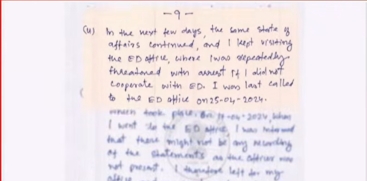 - 9 -
(u) In the next few days, the same state of
affairs continued, and I kept visiting
the ED office, where I was repeatedly
threatened with arrest if I did not
cooperate with ED. I was last called
to the ED office on 25-04-2024.
took place. On 2024, when
I went to the ED office, I was informed
that there might not be any recording
of the statements as the officer was
not present. I therefore left for my
office